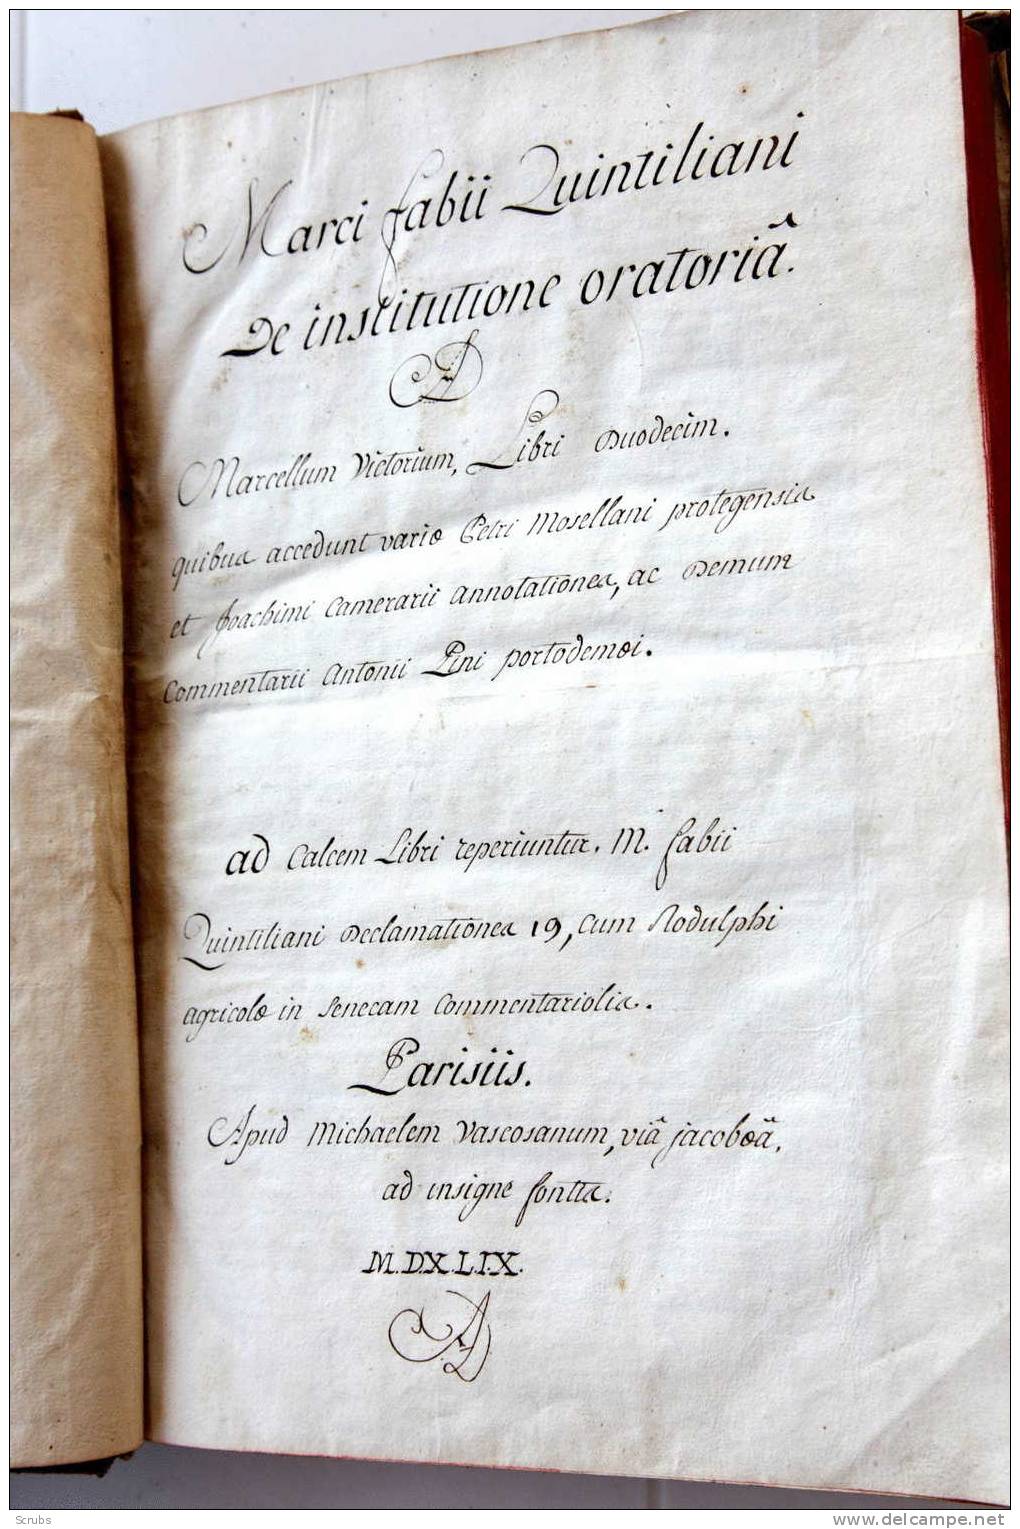 Marci fabii Quintiliani
De institutione oratoriâ.
AD
Marcellum Victorium, Libri Duodecim.
quibus accedunt variæ Petri Mosellani protegensis
et Joachimi Camerarii annotationes, ac Demum
Commentarii Antonii Pini portodemæi.
ad Calcem Libri reperiuntur. M. fabii
Quintiliani Declamationes 19, cum Rodulphi
agricolæ in Senecam Commentariolis.
Parisiis.
Apud Michaelem Vascosanum, viâ jacobæâ,
ad insigne fontis.
M.D.X.L.I.X.
Scrubs
www.delcampe.net